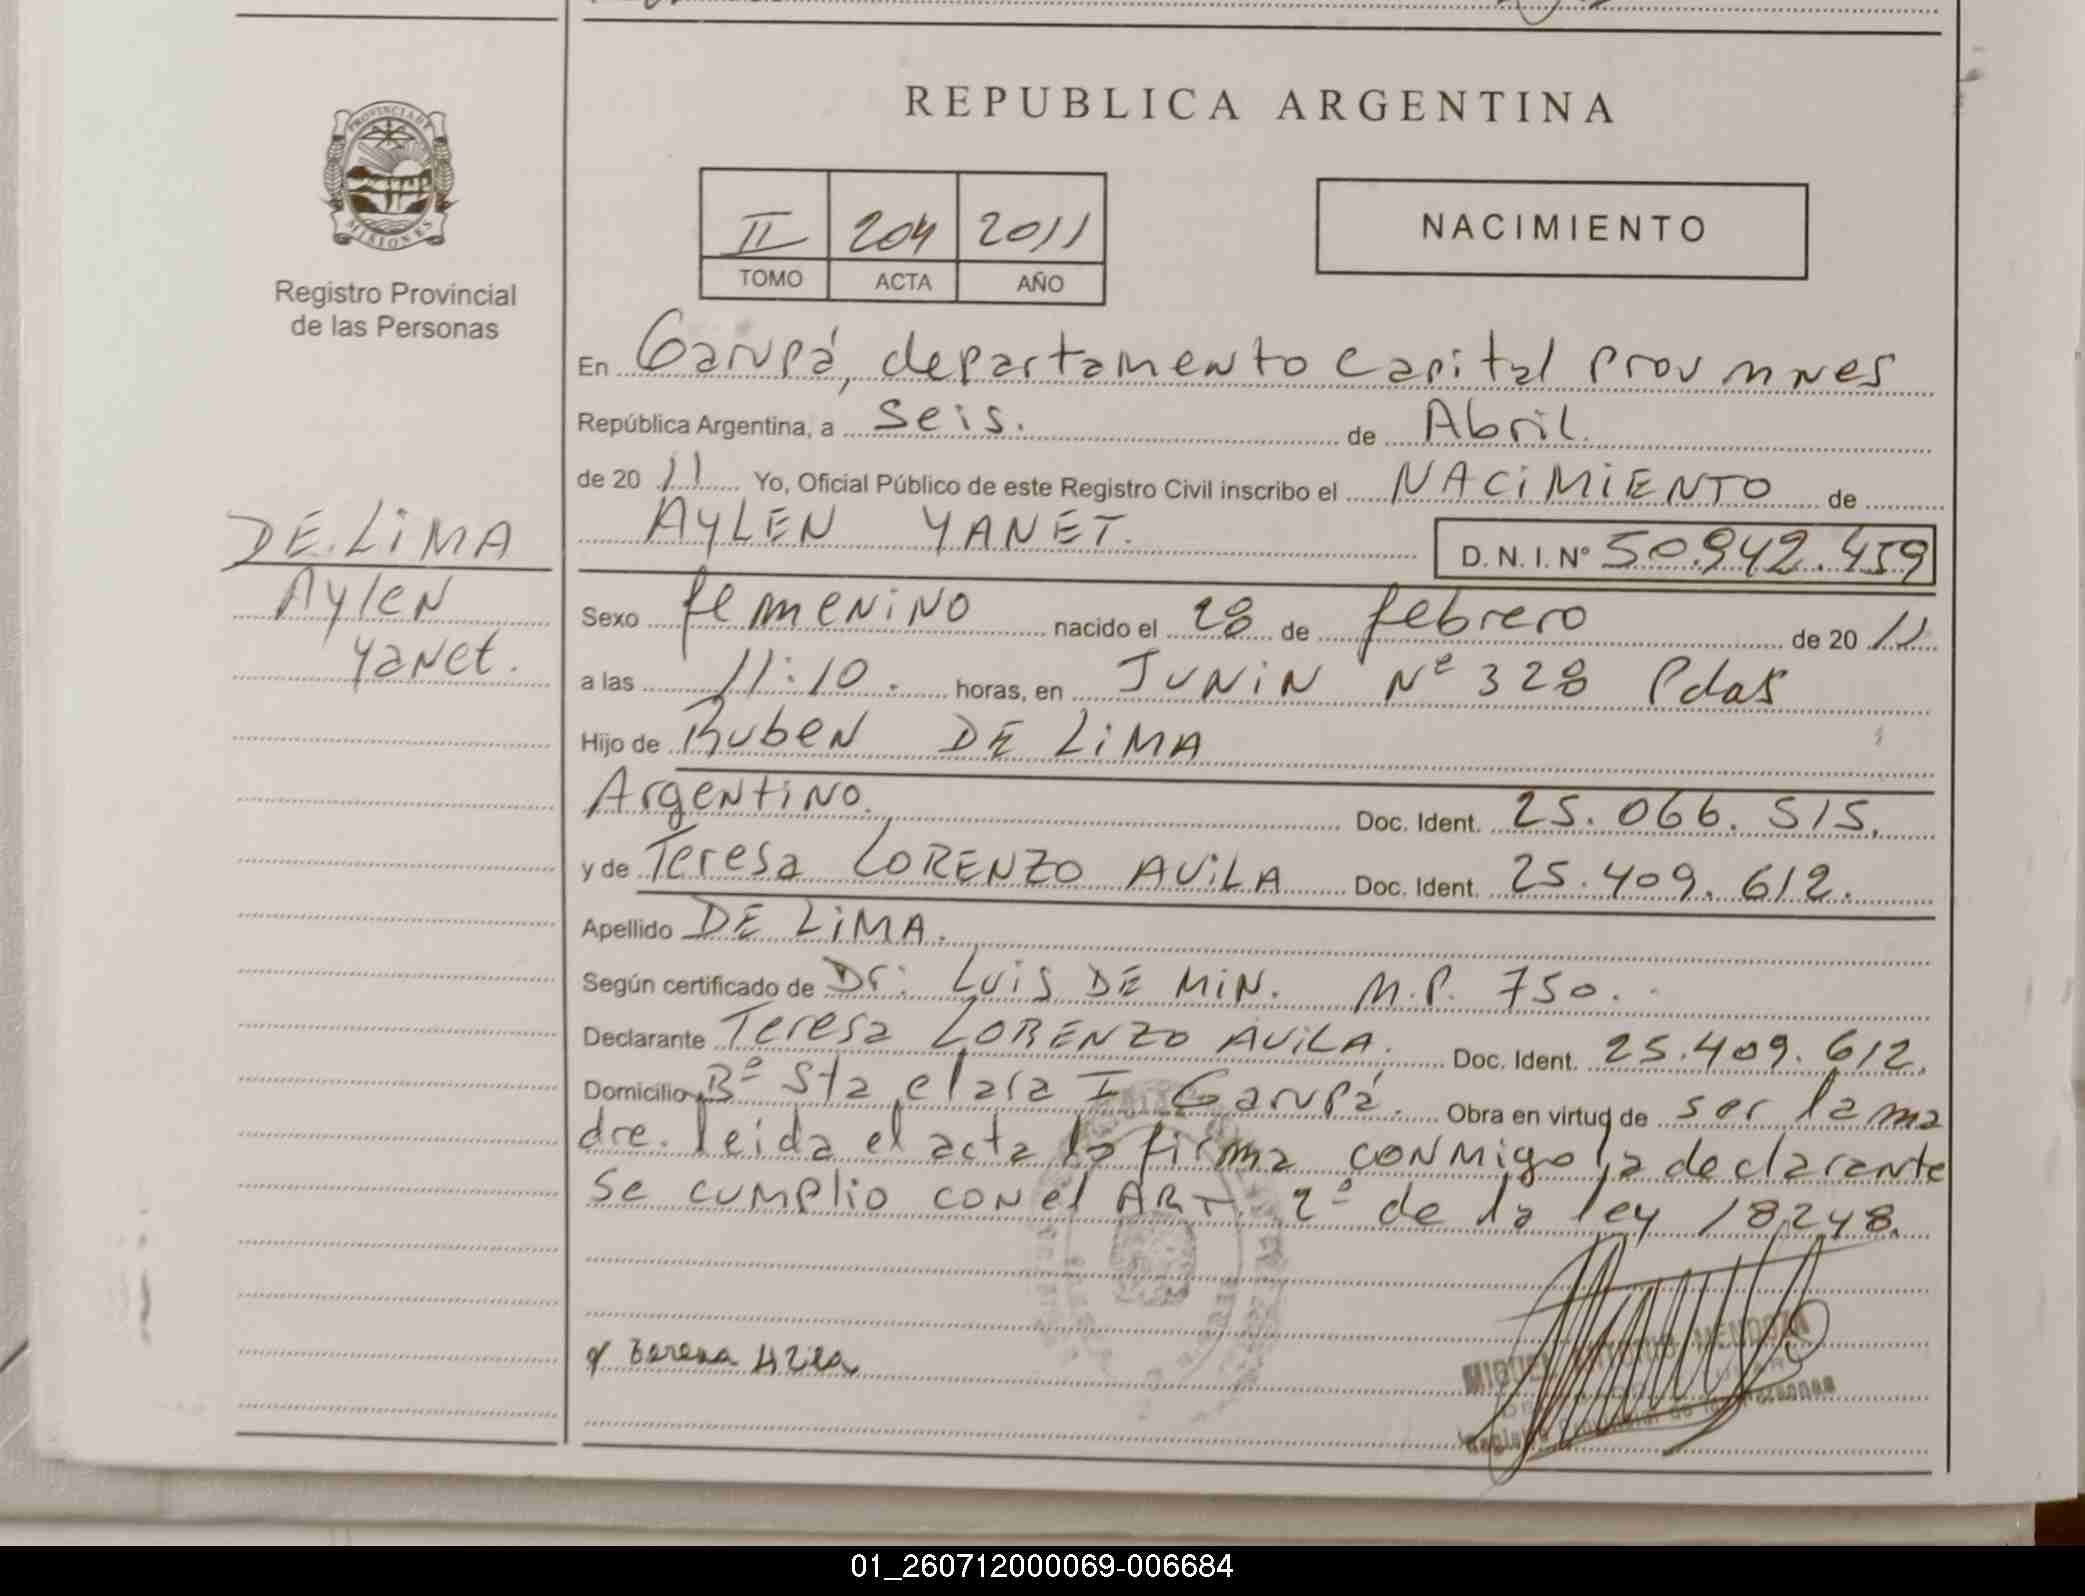 PROVINCIA DE
MISIONES
Registro Provincial
de las Personas
DE LIMA
Aylen
Yanet.
REPUBLICA ARGENTINA
II 204 2011
TOMO ACTA AÑO
NACIMIENTO
En Garupá, departamento Capital Prov Mnes
República Argentina, a seis. de Abril.
de 20 11 Yo, Oficial Público de este Registro Civil inscribo el NACIMIENTO de
AYLEN YANET. D. N. I. Nº 50.942.459
Sexo femenino nacido el 28 de febrero de 20 11
a las 11:10. horas, en JUNIN Nº 328 Pdas
Hijo de Ruben DE LIMA
Argentino. Doc. Ident. 25.066.515.
y de Teresa LORENZO AVILA Doc. Ident. 25.409.612.
Apellido DE LIMA.
Según certificado de Dr: LUIS DE MIN. M.P. 750.
Declarante Teresa LORENZO AVILA. Doc. Ident. 25.409.612.
Domicilio Bº Sta clara I Garupá. Obra en virtud de ser la ma
dre. leida el acta la firma conmigo la declarante
se cumplio con el ART. 2º de la ley 18248.
MIGUEL ANTONIO MENDOZA
01_260712000069-006684